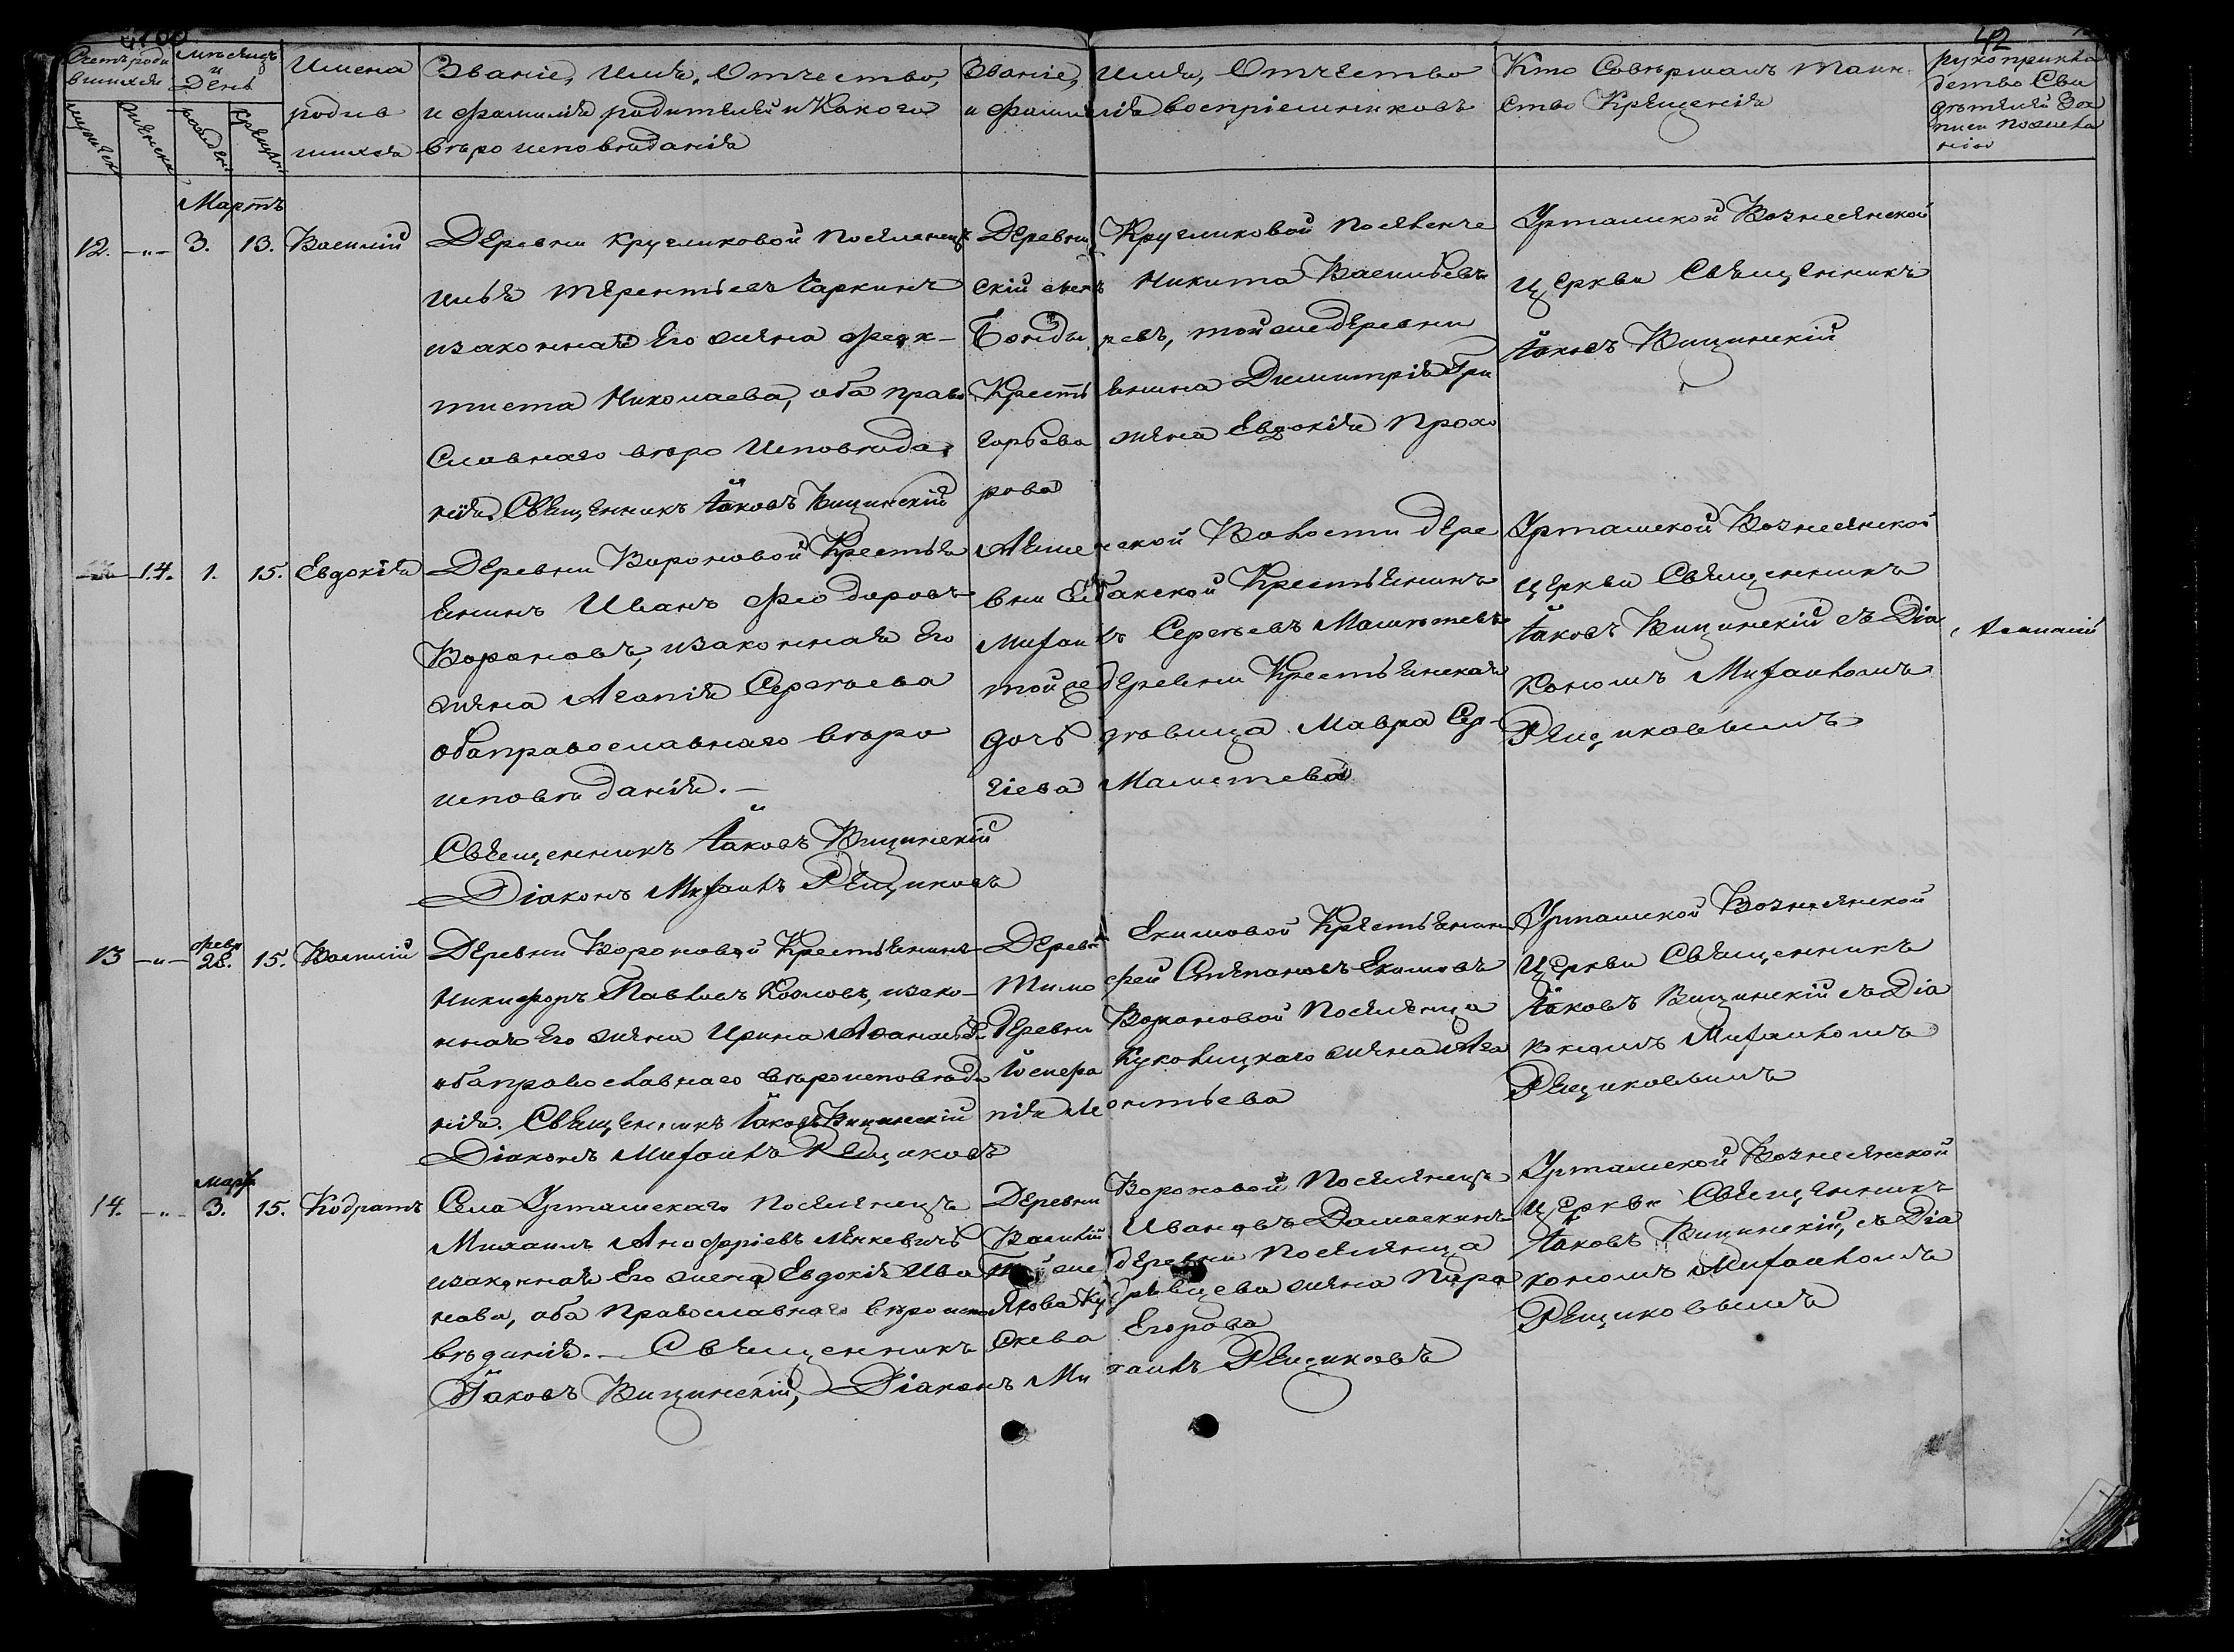 42
Счетъ роди
вшихся
мѣсяцъ
и
День
Имена
родив
шихся
Званіе, Имя, Отчество,
и фамилія родителей и Какого
вѣроисповѣданія
Званіе, Имя, Отчество
и фамилія воспріемниковъ
Кто Совершалъ Таин
ство Крещенія
рукоприкла
детво Сви
дѣтелей За
писи по жела
нію
Мартъ
12. 3. 13. Василій
Деревни Кругликовой поселенецъ
Илья Терентьевъ Царкинъ
изаконная Его жена Феок-
тиста Николаева, оба право
Славнаго вѣро Исповѣда
нія. Священникъ Іаковъ Вицинскій
Деревни Кругликовой Поселенче
скій сынъ Никита Васильевъ
Бонды ревъ, той же деревни
Крестьянина Димитрія Гри
горьева жена Евдокія Прохо
рова
Урташской Вознесенской
Церкви Священникъ
Іаковъ Вицинскій
14. 1. 15. Евдокія
Деревни Вороновой Крестья
янинъ Иванъ Феодоровъ
Вороновъ, изаконная Его
жена Агапія Сергѣева
оба православнаго вѣро
исповѣданія.
Священникъ Іаковъ Вицинскій
Діаконъ Михаилъ Рещиковъ
ской Волости дере
вни Крестьянинъ
Михаилъ Сергѣевъ
той же деревни Крестьянская
дочь дѣвица Мавра Сер-
гіева
Урташской Вознесенской
церкви Священникъ
Іаковъ Вицинскій съ Діа
кономъ Михаиломъ
Рещиковымъ
13 февр 28. 15. Василій
Деревни Вороновой Крестьянинъ
Никифоръ Павловъ Козловъ, изако-
нная Его жена Ирина
оба православнаго вѣроисповѣда
нія. Священникъ Іаковъ Вицинскій
Діаконъ Михаилъ Рещиковъ
Деревни Екимовой Крестьянинъ
Тимофей Степановъ Екимовъ
Деревни Вороновой Поселенца
жена Ага
пія Леонтьева
Урташской Вознесенской
Церкви Священникъ
Іаковъ Вицинскій съ Діа
кономъ Михаиломъ
Рещиковымъ
14. март 3. 15. Кодратъ
Села Урташскаго поселенецъ
Михаилъ Анофріевъ
изаконная Его жена Евдокія Ива
нова, оба Православнаго вѣроиспо
вѣданія. Священникъ
Іаковъ Вицинскій, Діаконъ Михаилъ Рещиковъ
Деревни Вороновой Поселенецъ
Василій Ивановъ Дамаскинъ
Той же деревни Поселенца
Якова жена
Егорова
Урташской Вознесенской
Церкви Священникъ
Іаковъ Вицинскій, съ Діа
кономъ Михаиломъ
Рещиковымъ